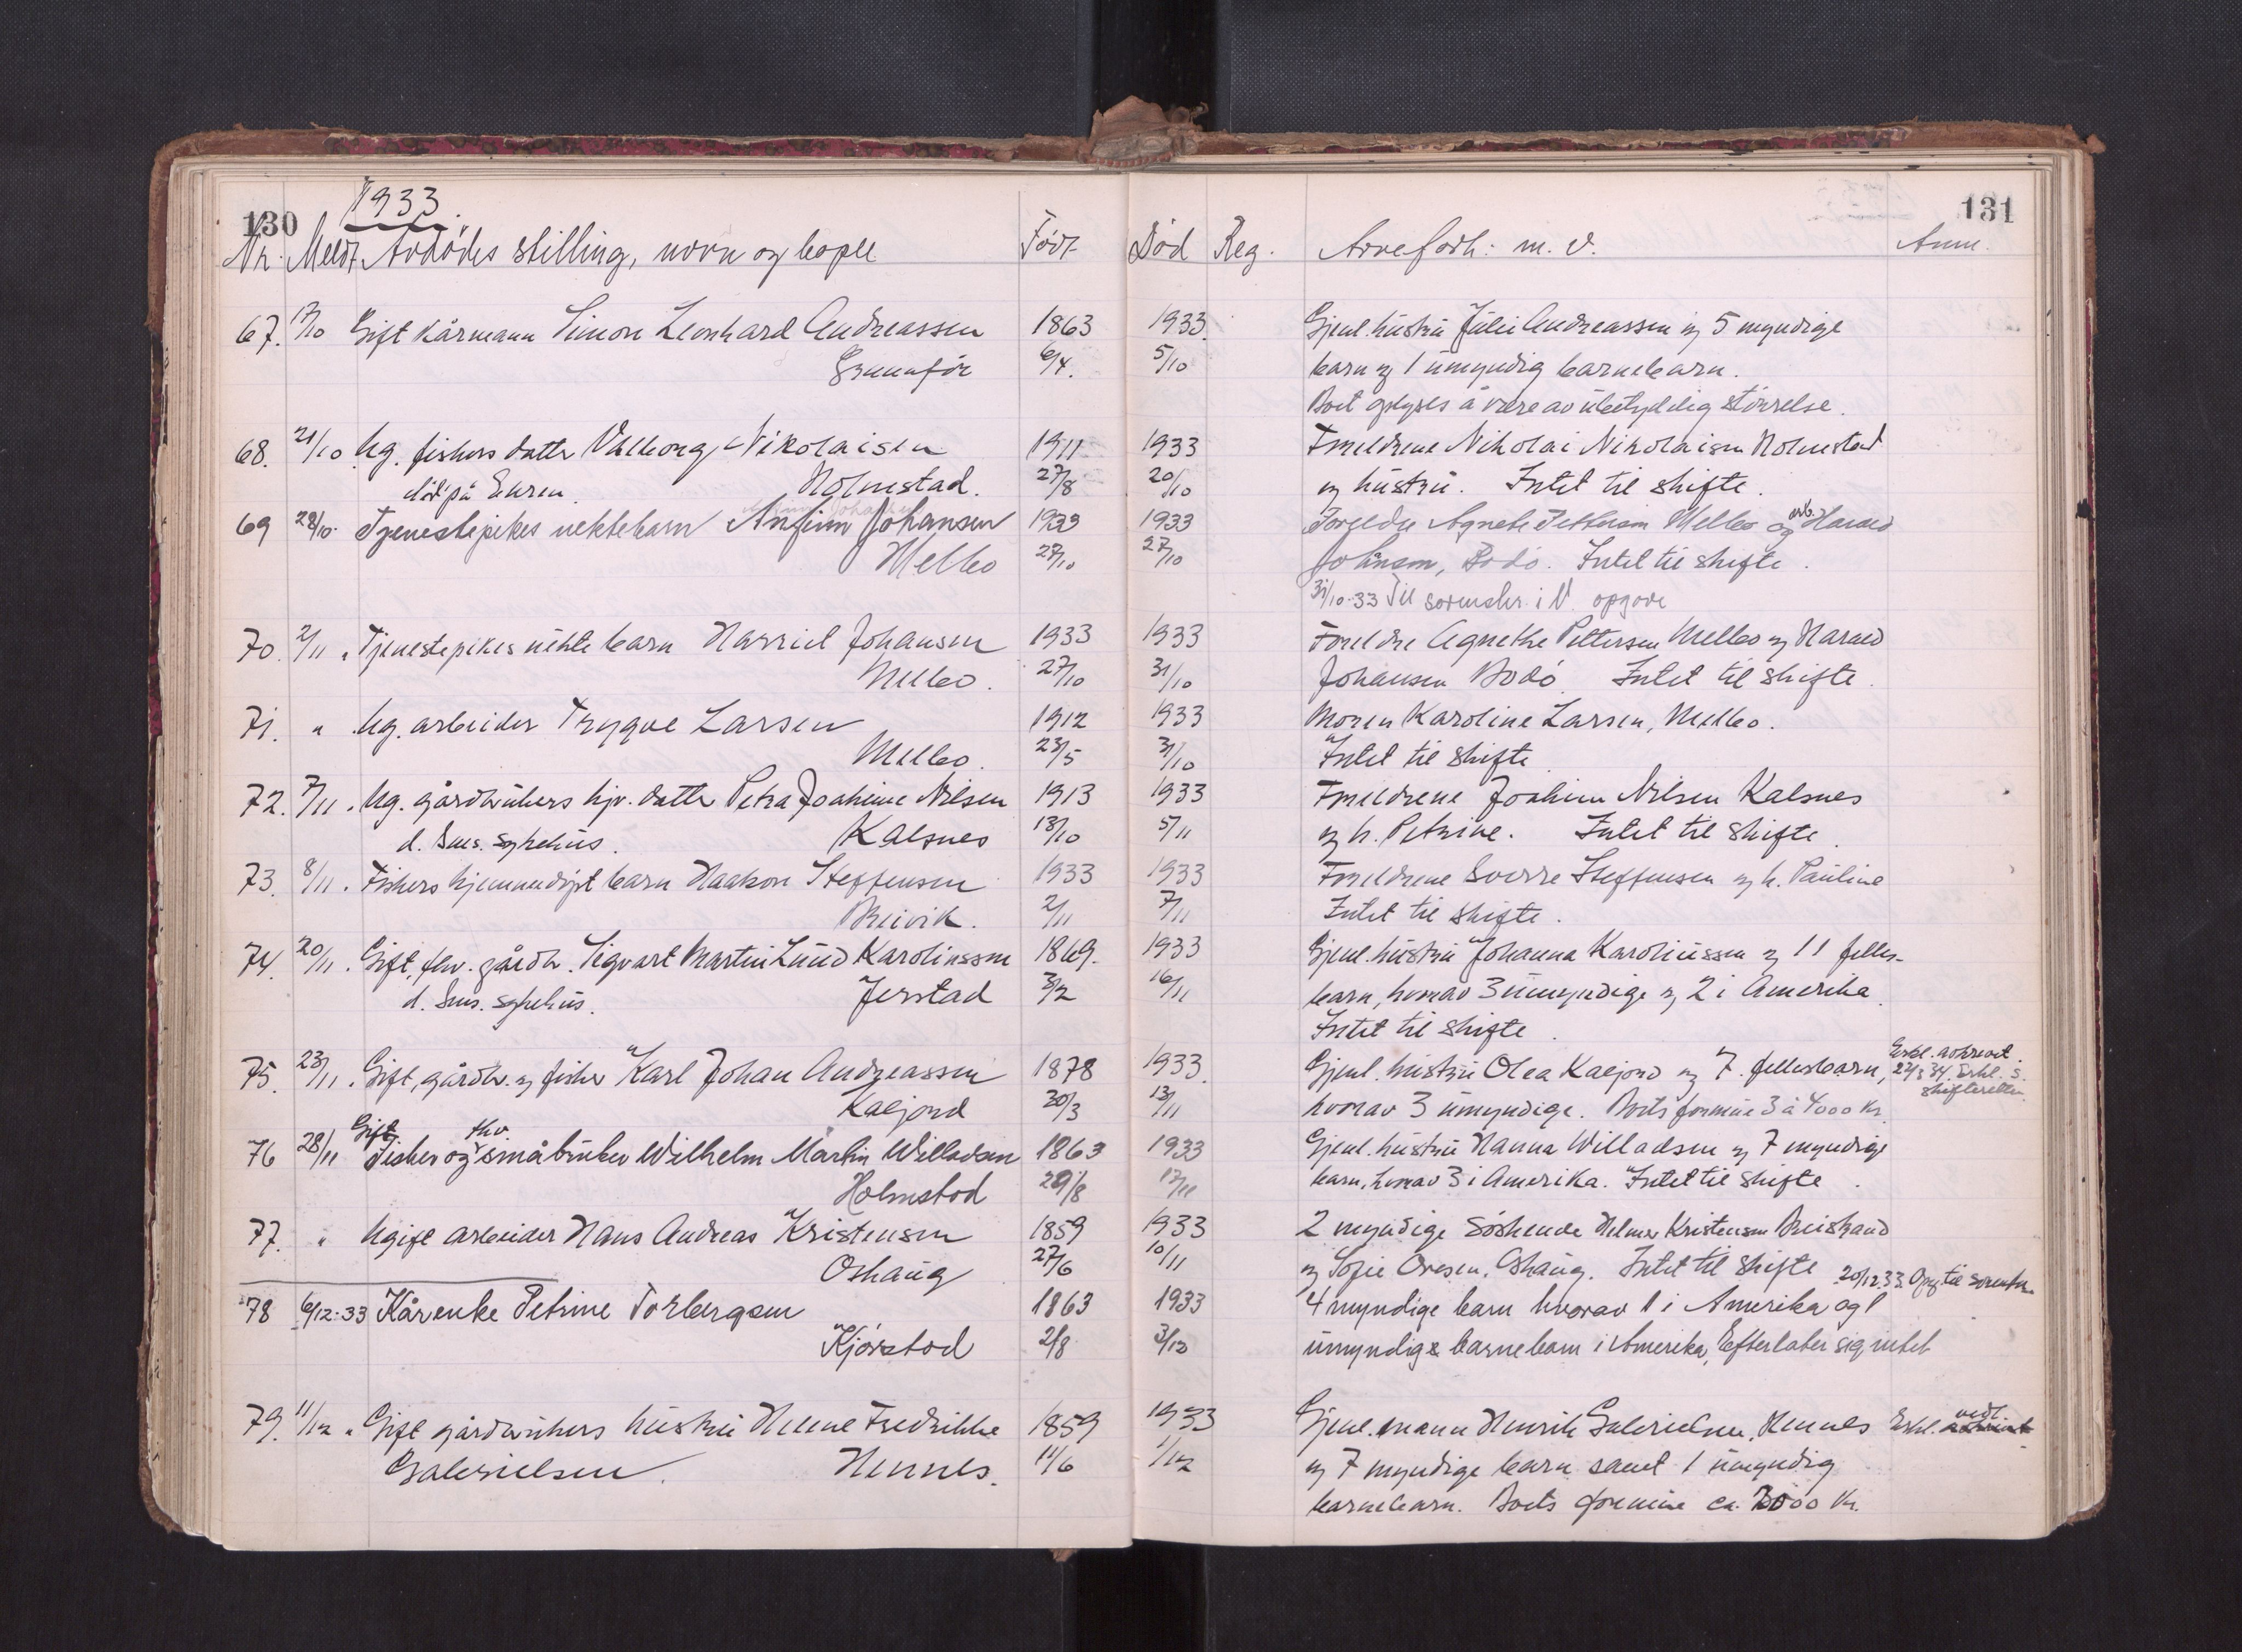 130
1933.
Nr. Meldt Avdödes stilling, navn og bopel Födt Död Reg. Arveforh: m. v. Anm.
131
67. /10 Gift kårmann Simon Leonhard Andreassen 1863 1933. Gjenl. hustru Julie Andreassen og 5 myndige
Grunnför 6/4. 5/10 barn og 1 umyndig barnebarn.
Boet oplyses å være av ubetydelig störrelse.
68. 21/10 Ug. fiskers datter Valborg Nikolaisen 1911 1933 Foreldrene Nikolai Nikolaisen Holmstad
död på Holmstad. 27/8 20/10 og hustru. Intet til skifte.
69 28/10 Tjenestepikes uektebarn Anfinn Johansen 1933 1933 Foreldre Agnete Pettersen Melbo og arb. Harald
Melbo 27/10 27/10 Johansen, Bodö. Intet til skifte.
31/10-33 Til sorenskr. i V. opgave
70. 2/11 " Tjenestepikes uekte barn Harriet Johansen 1933 1933 Foreldre Agnethe Pettersen Melbo og Harald
Melbo. 27/10 31/10 Johansen Bodö. Intet til skifte.
71. " Ug. arbeider Trygve Larsen 1912 1933 Moren Karoline Larsen, Melbo.
Melbo. 23/5 31/10 Intet til skifte
72. 7/11. Ug. gårdbrukers hjv. datter Petra Joakime Nilsen 1913 1933 Foreldrene Joakim Nilsen Kalsnes
d. Sms. sykehus. Kalsnes 13/10 5/11 og h. Petrine. Intet til skifte.
73. 8/11. Fiskers hjemmedöpt barn Haakon Steffensen 1933 1933 Foreldrene Sverre Steffensen og h. Pauline
Breivik. 2/11 7/11 Intet til skifte.
74. 20/11. Gift, fhv. gårdbr. Sigvart Martin Lund Karoliussen 1869. 1933 Gjenl. hustru Johanna Karoliussen og 11 felles-
d. Sms. sykehus. Jerstad 3/2 16/11 barn, hvorav 3 umyndige og 2 i Amerika.
Intet til skifte.
75. 23/11. Gift, gårdbr. og fisker Karl Johan Andreassen 1878 1933. Gjenl. hustru Olea Kaljord og 7 fellesbarn, Erkl. avkrevet.
Kaljord 30/3 13/11 hvorav 3 umyndige. Boets formue 3 à 4000 kr. 34. Erkl. s. skifteretten
76 28/11 Gift Fisker og fhv. småbruker Wilhelm Martin Willadsen 1863 1933 Gjenl. hustru Hanna Willadsen og 7 myndige
Holmstad 29/8 17/11 barn, hvorav 3 i Amerika. Intet til skifte.
77. " Ugift arbeider Hans Andreas Kristensen 1859 1933 2 myndige söskende Helmer Kristensen Breistrand
Oshaug 27/6 10/11 og Sofie Oresen, Oshaug. Intet til skifte 20/12.33. Opg. til sorenskr.
78 6/12-33 Kårenke Petrine Torbergsen 1863 1933 4 myndige barn hvorav 1 i Amerika og 1
Kjörstad 2/8 3/12 umyndige barnebarn i Amerika, Efterlater sig intet
79. 11/12 " Gift gårdbrukers hustru Helene Fredrikke 1859 1933 Gjenl. mann Henrik Gabrielsen, Hennes Erkl. vedl. avkrevet
Gabrielsen. Hennes. 11/6 1/12 og 7 myndige barn samt 1 umyndig
barnebarn. Boets formue ca. 3000 kr.